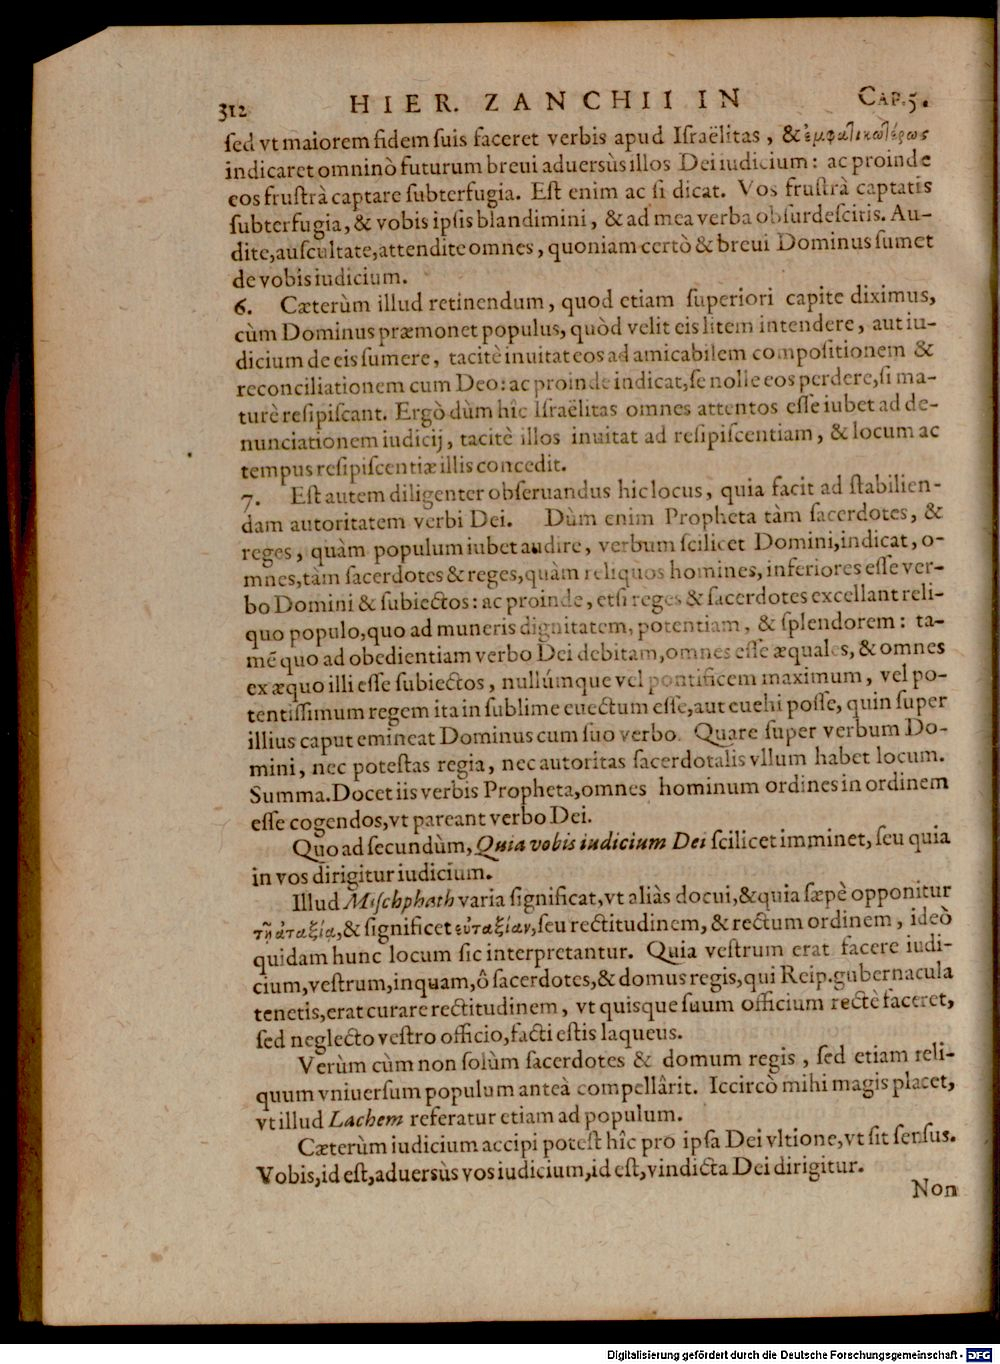 312 HIER. ZANCHII IN CAP. 5.
ſed vt maiorem fidem ſuis faceret verbis apud Iſraëlitas, & ἐμφατικωτέρως
indicaret omninò futurum breui aduersùs illos Dei iudicium: ac proinde
eos fruſtrà captare ſubterfugia. Eſt enim ac ſi dicat. Vos fruſtrà captatis
ſubterfugia, & vobis ipſis blandimini, & ad mea verba obſurdeſcitis. Au-
dite, auſcultate, attendite omnes, quoniam certò & breui Dominus ſumet
de vobis iudicium.
6. Cæterùm illud retinendum, quod etiam ſuperiori capite diximus,
cùm Dominus præmonet populus, quòd velit eis litem intendere, aut iu-
dicium de eis ſumere, tacitè inuitat eos ad amicabilem compoſitionem &
reconciliationem cum Deo: ac proinde indicat, ſe nolle eos perdere, ſi ma-
turè reſipiſcant. Ergò dùm hîc Iſraëlitas omnes attentos eſſe iubet ad de-
nunciationem iudicij, tacitè illos inuitat ad reſipiſcentiam, & locum ac
tempus reſipiſcentiæ illis concedit.
7. Eſt autem diligenter obſeruandus hic locus, quia facit ad ſtabilien-
dam autoritatem verbi Dei. Dùm enim Propheta tàm ſacerdotes, &
reges, quàm populum iubet audire, verbum ſcilicet Domini, indicat, o-
mnes, tàm ſacerdotes & reges, quàm reliquos homines, inferiores eſſe ver-
bo Domini & ſubiectos: ac proinde, etſi reges & ſacerdotes excellant reli-
quo populo, quo ad muneris dignitatem, potentiam, & ſplendorem: ta-
mẽ quo ad obedientiam verbo Dei debitam, omnes eſſe æquales, & omnes
ex æquo illi eſſe ſubiectos, nullúmque vel pontificem maximum, vel po-
tentiſſimum regem ita in ſublime euectum eſſe, aut euehi poſſe, quin ſuper
illius caput emineat Dominus cum ſuo verbo. Quare ſuper verbum Do-
mini, nec poteſtas regia, nec autoritas ſacerdotalis vllum habet locum.
Summa. Docet iis verbis Propheta, omnes hominum ordines in ordinem
eſſe cogendos, vt pareant verbo Dei.
Quo ad ſecundùm, Quia vobis iudicium Dei ſcilicet imminet, ſeu quia
in vos dirigitur iudicium.
Illud Miſchphath varia ſignificat, vt aliàs docui, & quia ſæpè opponitur
τῇ ἀταξίᾳ, & ſignificet εὐταξίαν, ſeu rectitudinem, & rectum ordinem, ideò
quidam hunc locum ſic interpretantur. Quia veſtrum erat facere iudi-
cium, veſtrum, inquam, ô ſacerdotes, & domus regis, qui Reip. gubernacula
tenetis, erat curare rectitudinem, vt quisque ſuum officium rectè faceret,
ſed neglecto veſtro officio, facti eſtis laqueus.
Verùm cùm non ſolùm ſacerdotes & domum regis, ſed etiam reli-
quum vniuerſum populum anteà compellârit. Iccircò mihi magis placet,
vt illud Lachem referatur etiam ad populum.
Cæterùm iudicium accipi poteſt hîc pro ipſa Dei vltione, vt ſit ſenſus.
Vobis, id eſt, aduersùs vos iudicium, id eſt, vindicta Dei dirigitur.
Non
Digitalisierung gefördert durch die Deutsche Forschungsgemeinschaft - DFG